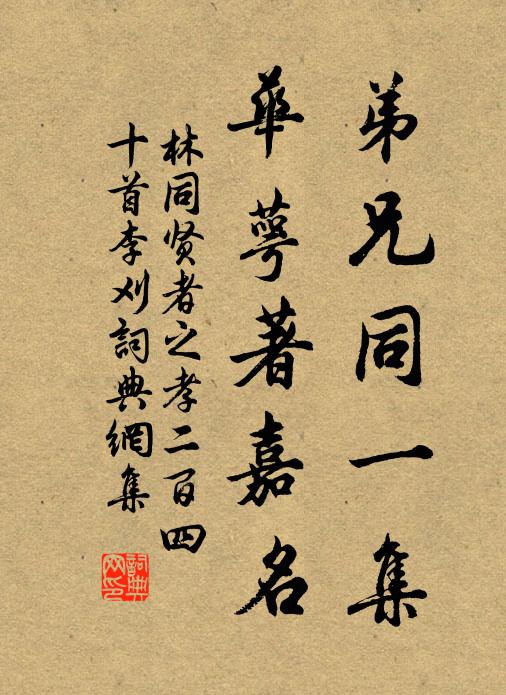 弟兄同一集
華萼著嘉名
林同贤者之孝二百四
十首李刈詞典網集
詞典网印